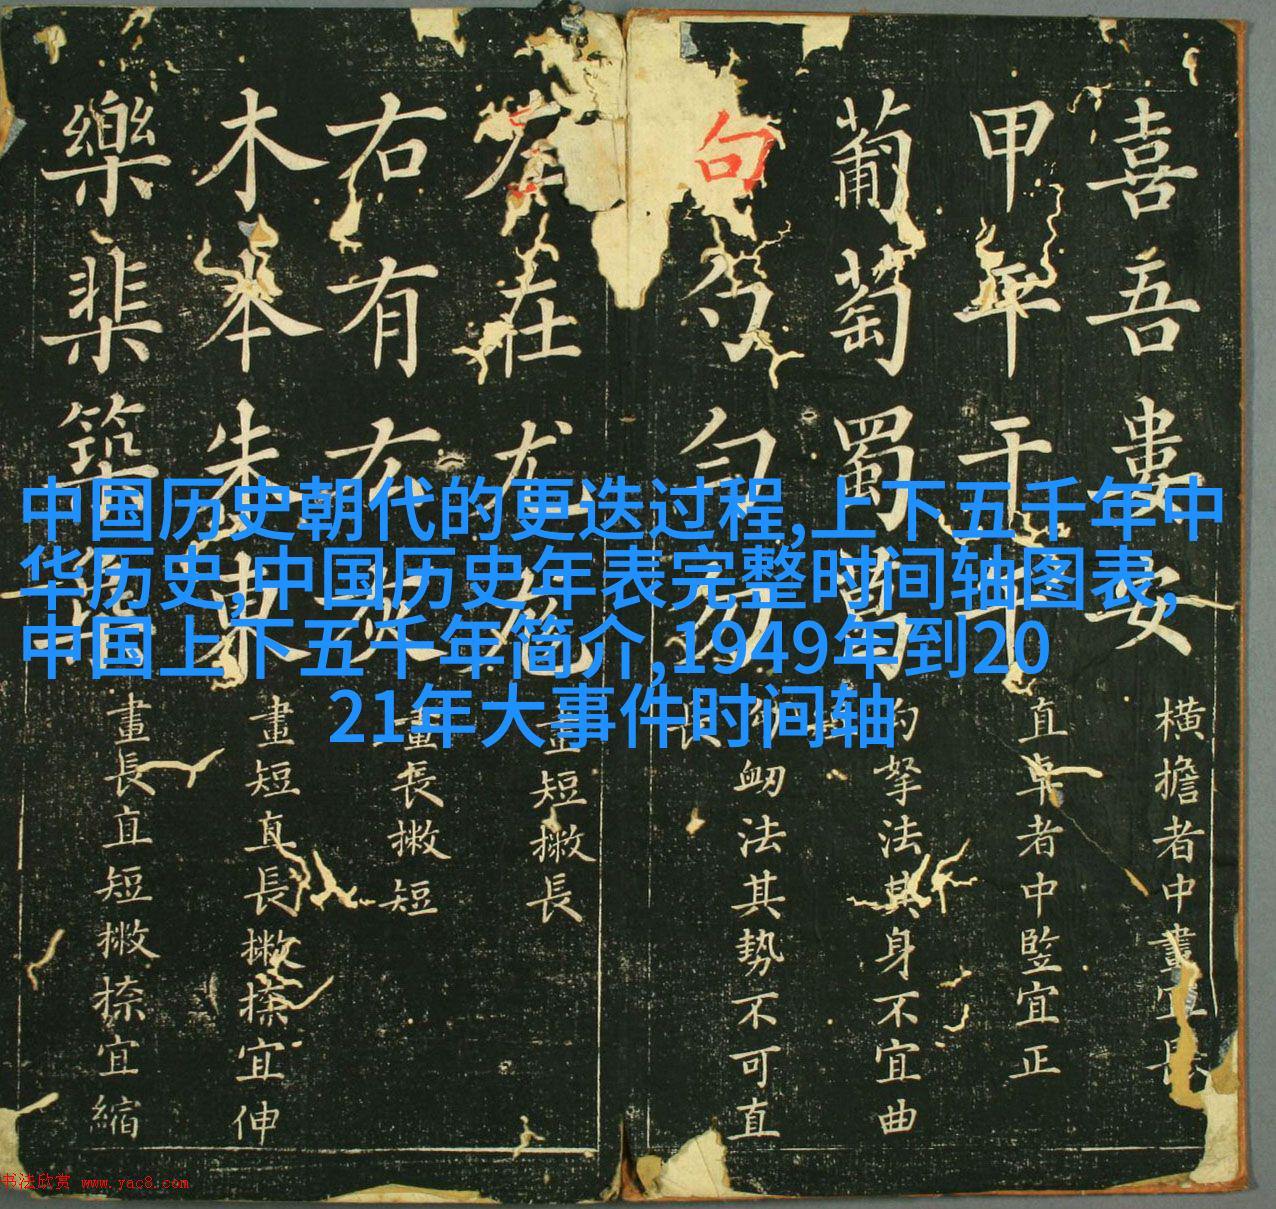 喜吾婁安
橫擔者中畫宜
甲平干
直卓者中竪宜正
葡萄蜀
拏法其身不宜曲
句勺勻勿
衂法其勢不可直
左在尤
畫短撇長
右有
畫長撇短
木本朱東
畫短直長撇捺宜伸
樂棐築
畫長直短撇捺宜縮
中国历史朝代的更迭过程,上下五千年中
华历史,中国历史年表完整时间轴图表,
中国上下五千年简介,1949年到20
21年大事件时间轴
书法欣赏 www.yac8.com